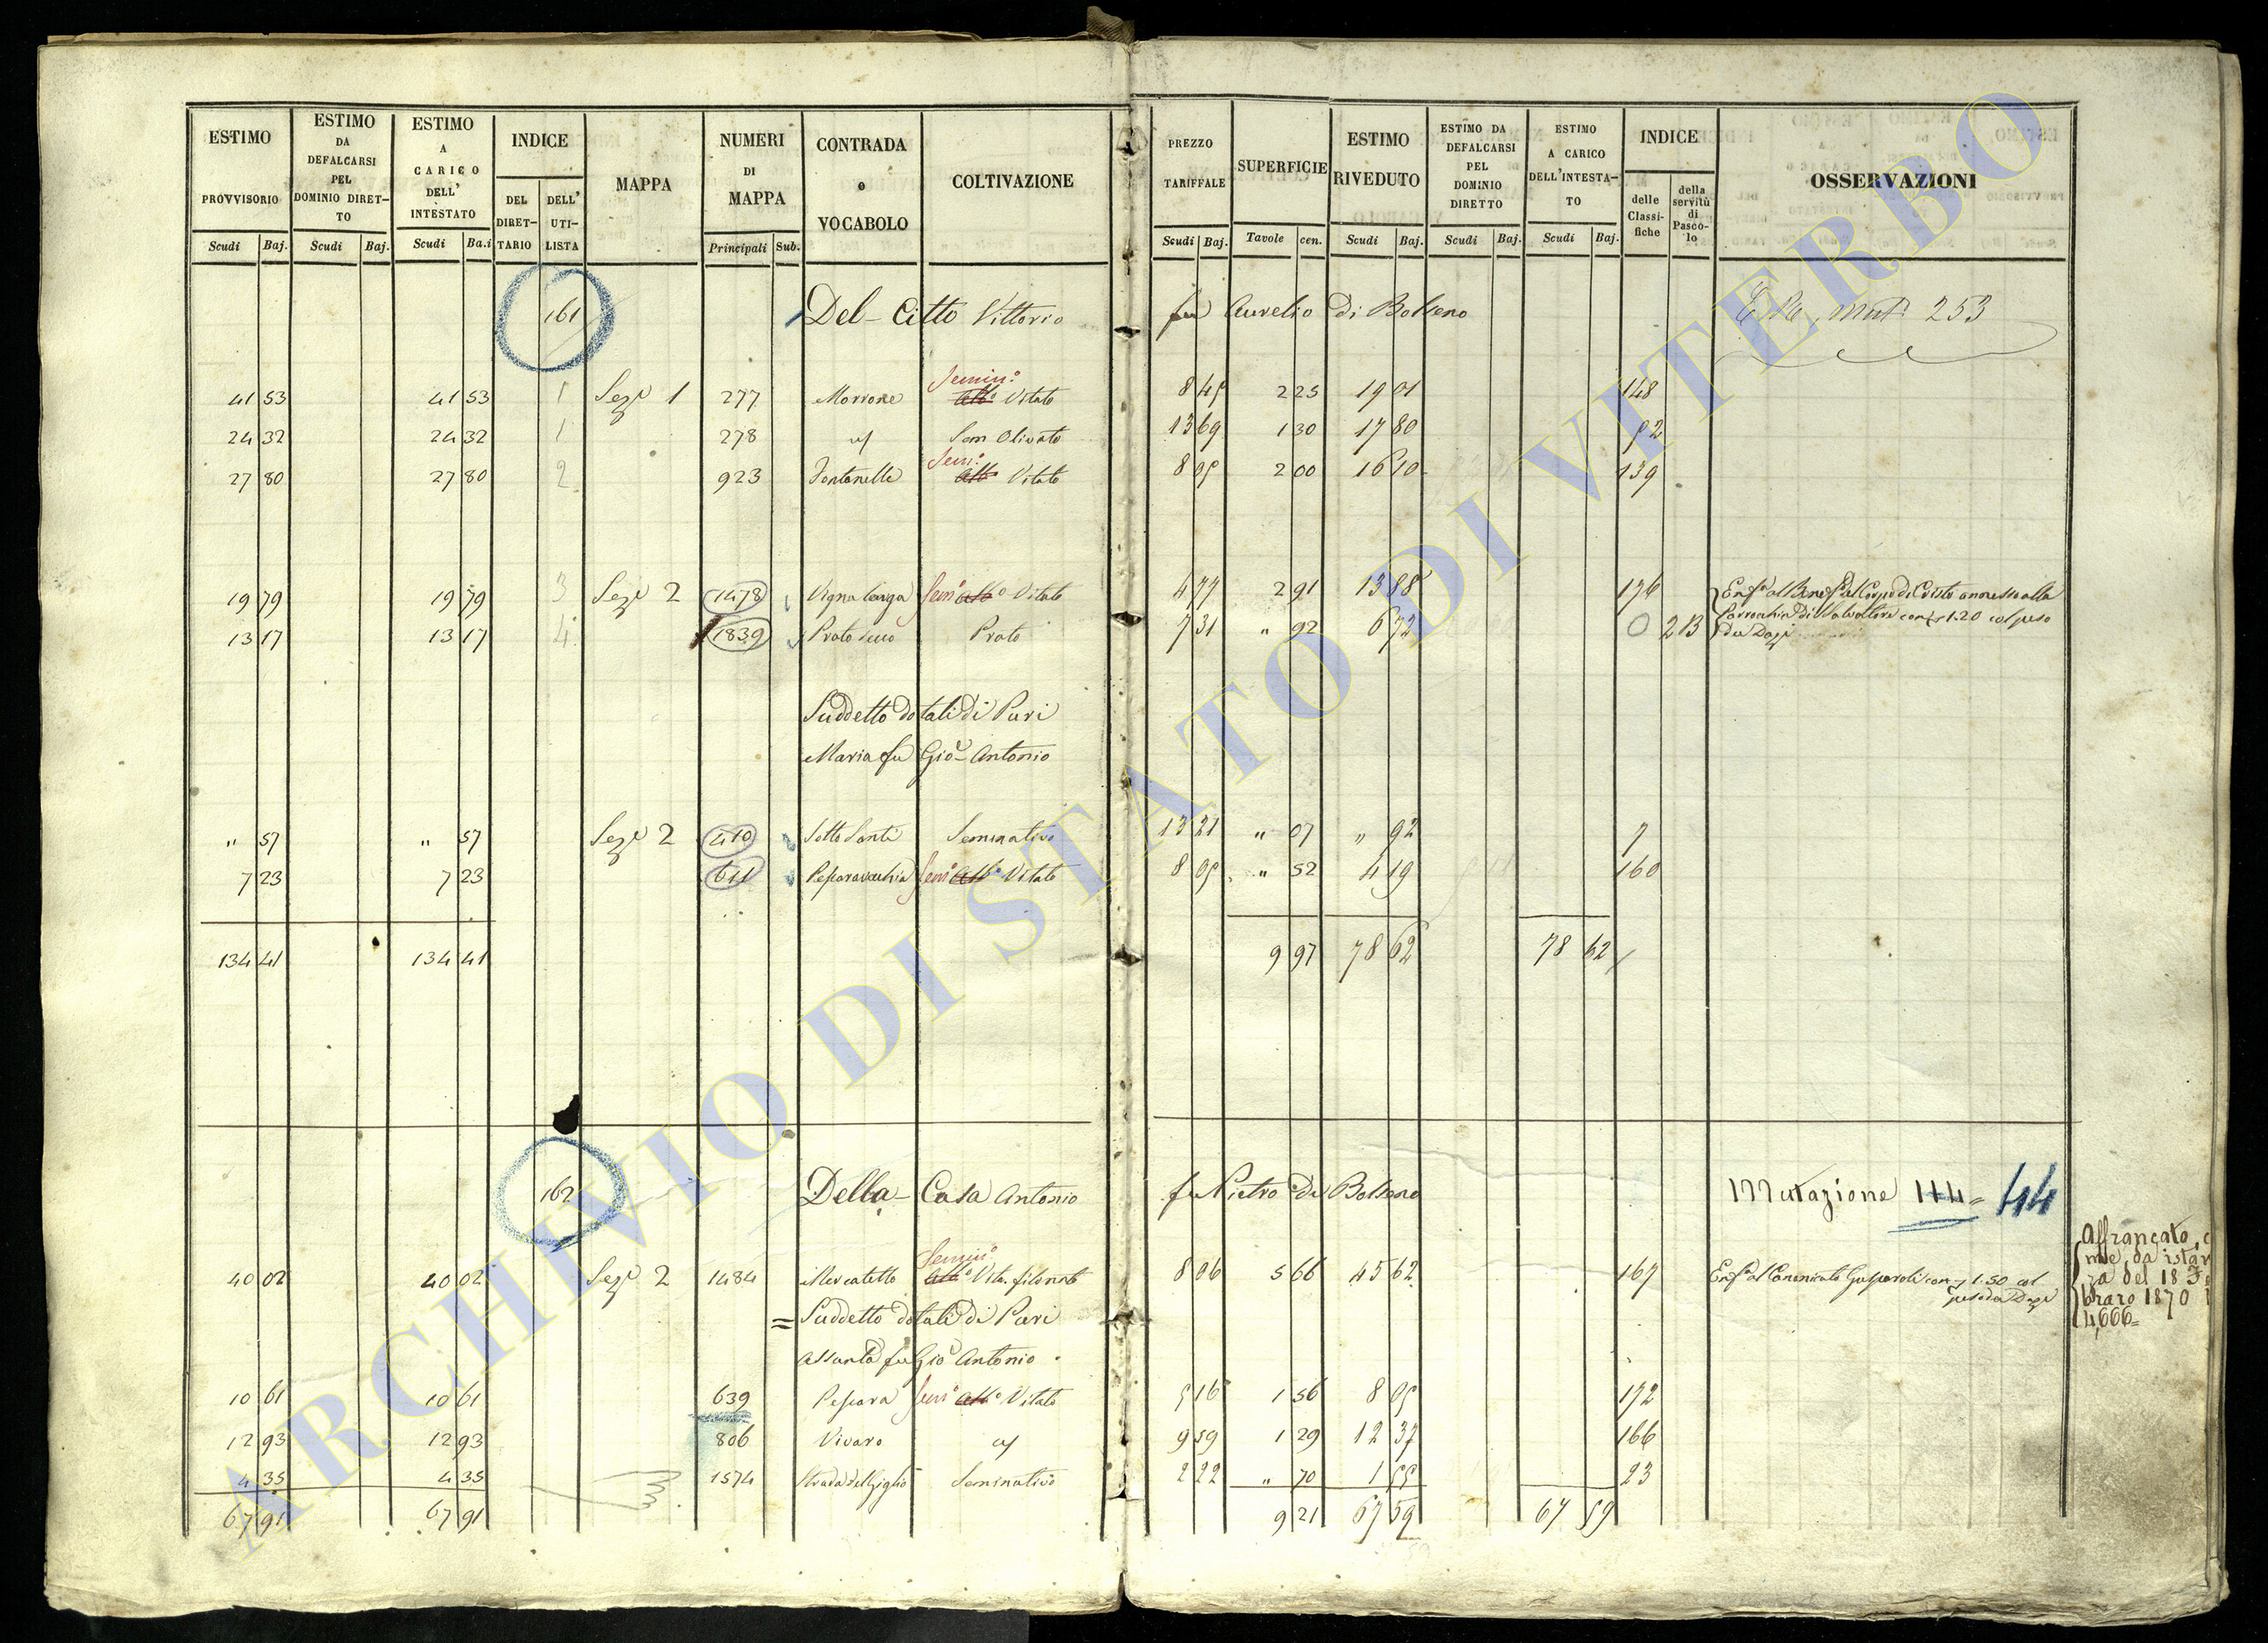 ESTIMO PROVVISORIO Scudi Baj.
ESTIMO DA DEFALCARSI PEL DOMINIO DIRETTO Scudi Baj.
ESTIMO A CARICO DELL' INTESTATO Scudi Ba.i
INDICE DEL DIRETTARIO DELL' UTILISTA
MAPPA
NUMERI DI MAPPA Principali Sub.
CONTRADA o VOCABOLO
COLTIVAZIONE
PREZZO TARIFFALE Scudi Baj.
SUPERFICIE Tavole cen.
ESTIMO RIVEDUTO Scudi Baj.
ESTIMO DA DEFALCARSI PEL DOMINIO DIRETTO Scudi Baj.
ESTIMO A CARICO DELL'INTESTATO Scudi Baj.
INDICE delle Classifiche della servitù di Pascolo
OSSERVAZIONI
161 Del-Citto Vittorio fu Aurelio di Bolseno mut. 253
41 53 41 53 1 Sez.e 1 277 Morrone Semin.o Alb.o Vitato 8 45 2 25 19 01 148
24 32 24 32 1 278 Sem Olivato 13 69 1 30 17 80 52
27 80 27 80 2 923 Fontanelle Sem.o Alb.o Vitato 8 05 2 00 16 10 139
19 79 19 79 3 Sez.e 2 1478 Vigna lunga Sem.o Alb.o Vitato 4 77 2 91 13 88 176 Enf.a al Benef. del Corpo di Cristo annesso alla
13 17 13 17 4 1839 Prato Prato 7 31 " 92 6 72 0 2B Parrocchia di S. Salvatore con 1.20 col peso
de Dazj
Suddetto dotali di Puri
Maria fu Gio. Antonio
" 57 " 57 Sez.e 2 410 Sotto Santi Seminativo 13 21 " 07 " 92 7
7 23 7 23 611 Pescaravecchia Sem.o Alb.o Vitato 8 05 " 52 4 19 160
134 41 134 41 9 97 78 62 78 62
162 Della-Casa Antonio fu Pietro di Bolseno Mutazione 114 = 44
40 02 40 02 Sez.e 2 1484 Mercatello Semin.o Alb.o Vit.o filonato 8 06 5 66 45 62 167 Enf.a al Canonicato Gasparoli con 1.50 col
peso de Dazj
Affrancato
da istan
za del 18
braro 1870
4,666=
= Suddetto dotali di Puri
Assunta fu Gio Antonio
10 61 10 61 639 Pescara Sem.o Alb.o Vitato 5 16 1 56 8 05 172
12 93 12 93 806 Vivaro 9 59 1 29 12 37 166
4 35 4 35 1574 Strada del Giglio Seminativo 2 22 " 70 1 55 23
67 91 67 91 9 21 67 59 67 59
ARCHIVIO DI STATO DI VITERBO